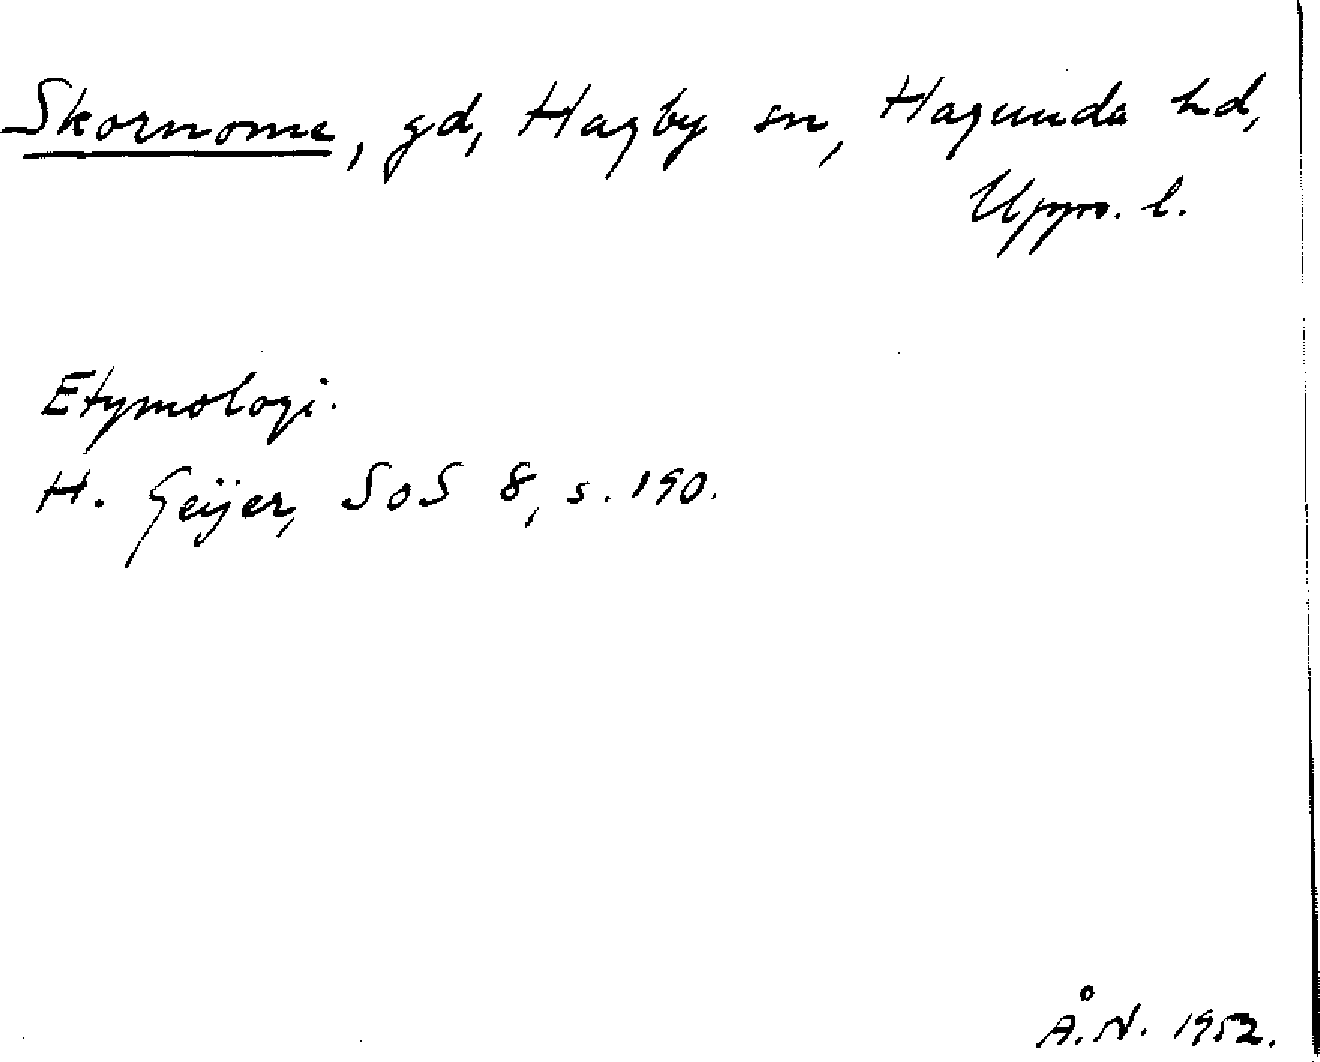 Skornome, gd, Hagby sn, Hagunda hd,
Upps. l.
Etymologi.
H. Geijer, SoS 8, s. 190.
Å. N. 1952.